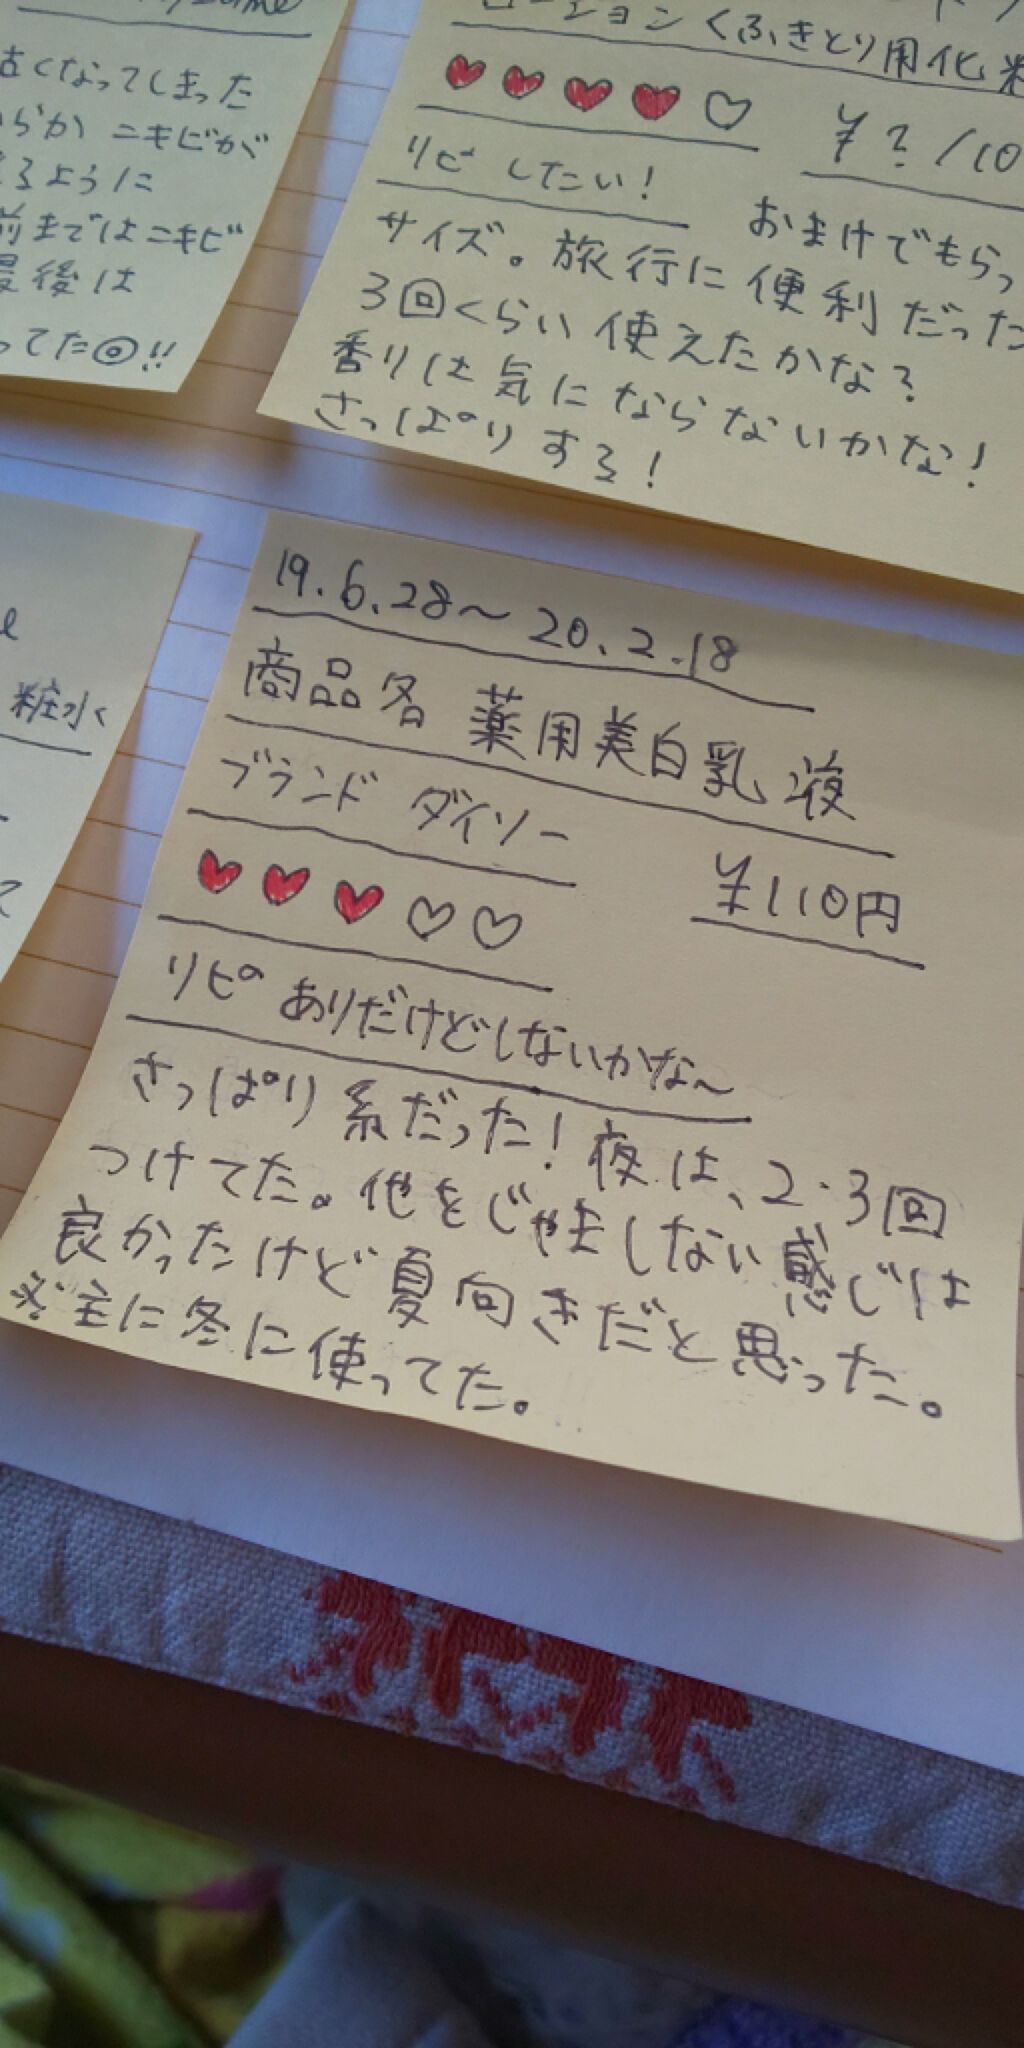 古くなってしまった
らか ニキビが
るように
前まではニキビ
最後は
ってた◎!!
ローション くふきとり用化粧
♥♥♥♥♡
¥?/10
リピ したい!
おまけでもらっ
サイズ。旅行に便利だった
3回くらい使えたかな?
香りは気にならないかな!
さっぱりする!
粧水
て
19.6.28〜20.2.18
商品名 薬用美白乳液
ブランド ダイソー
♥♥♥♡♡
¥110円
リピ ありだけどしないかな〜
さっぱり系だった!夜は、2・3回
つけてた。他をじゃましない感じは
良かったけど夏向きだと思った。
※主に冬に使ってた。